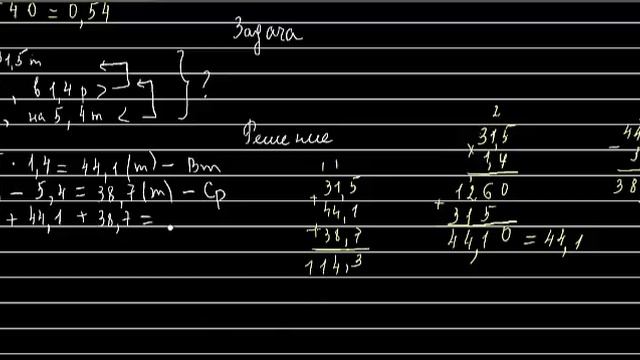 40 = 0,54
Задача
31,5 т
, в 1,4 р >
, на 5,4 т <
?
Решение
· 1,4 = 44,1 (т) – Вт
– 5,4 = 38,7 (т) – Ср
+ 44,1 + 38,7 =
1 1
31,5
+ 44,1
+ 38,7
114,3
2
31,5
× 1,4
1260
+ 315
44,10 = 44,1
44
–
38